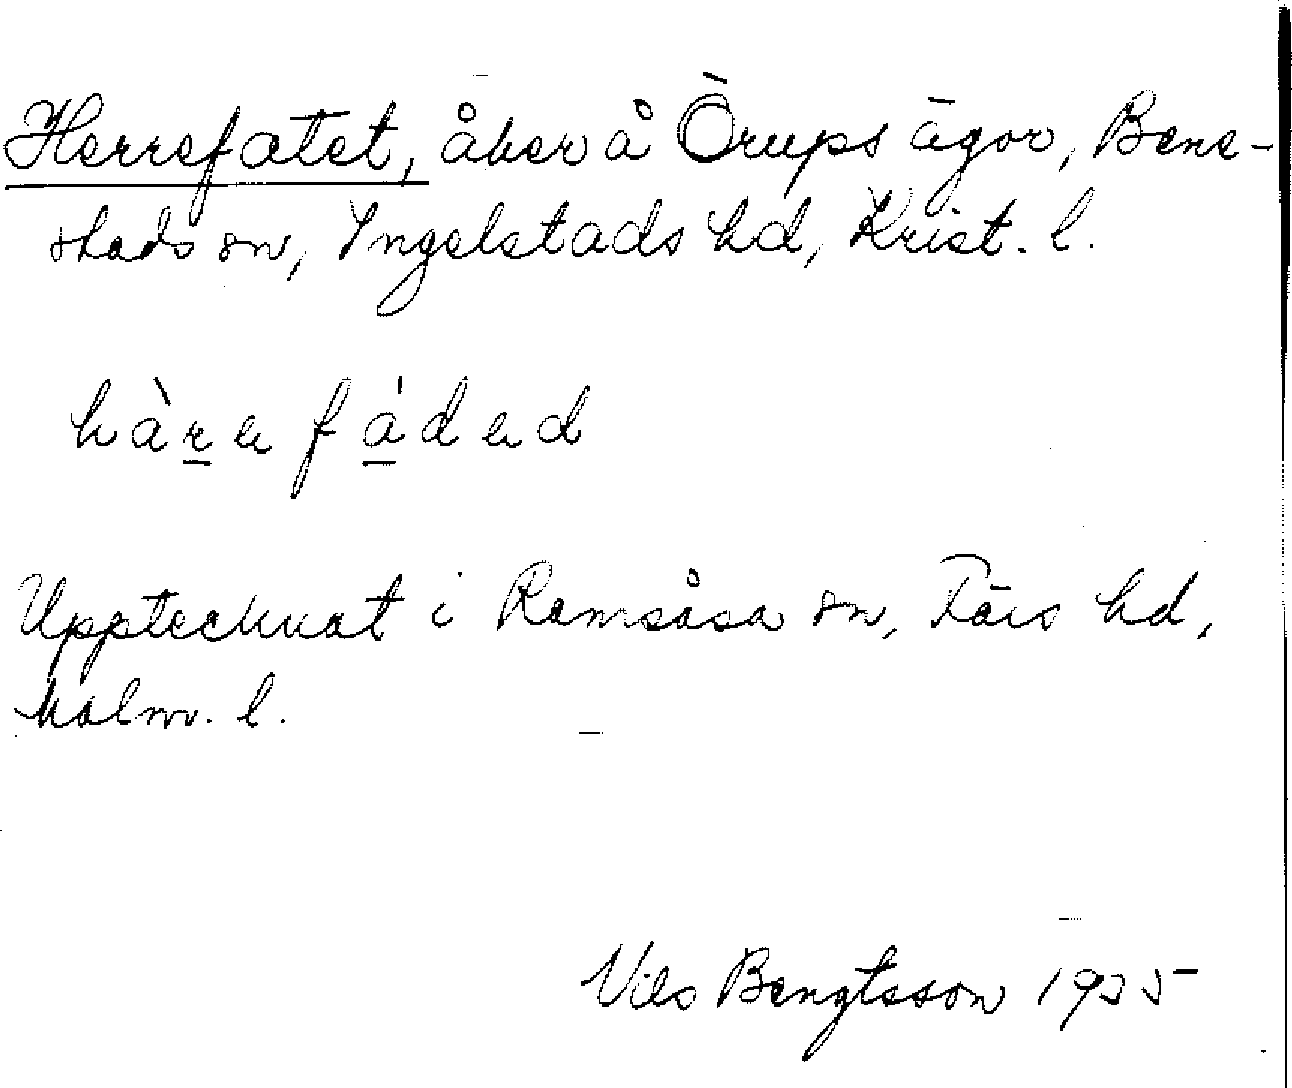 Herrefatet, åker å Örups ägor, Bene-
stads sn, Ingelstads hd, Krist. l.
hàrefáded
Upptecknat i Ramsåsa sn, Färs hd,
Malm. l.
Nils Bengtsson 1935